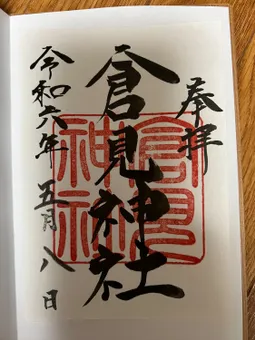 奉拝
倉見神社
倉見
神社
令和六年 五月 八日